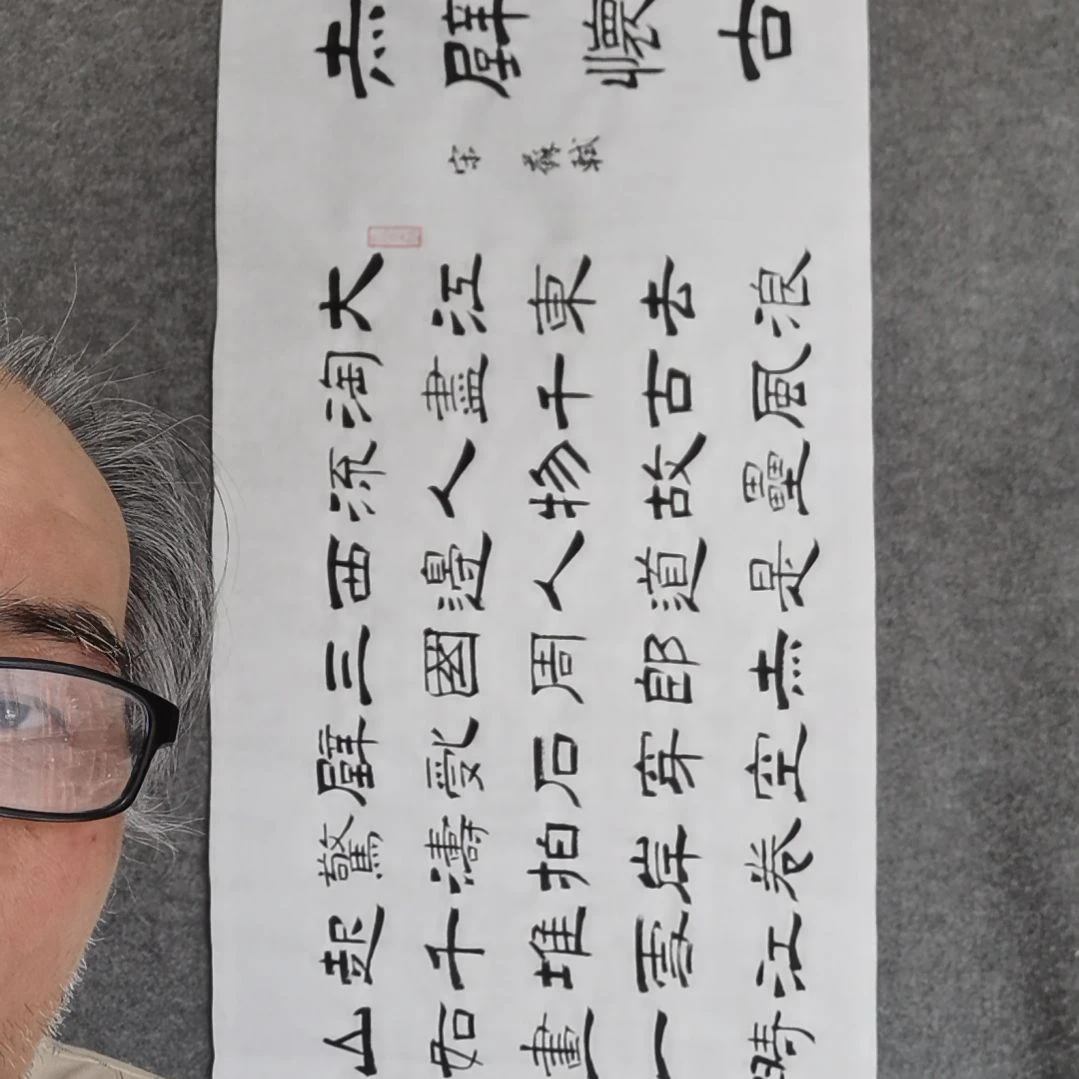 赤壁懷古
宋 蘇軾
大江東去浪
淘盡千古風
流人物故壘
西邊人道是
三國周郎赤
壁亂石穿空
驚濤拍岸卷
起千堆雪江
山如畫一時